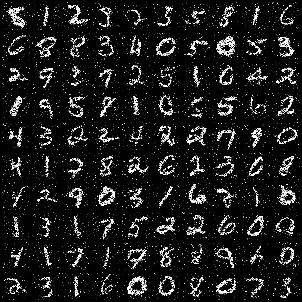 8 1 2 3 2 3 5 8 1 6
6 8 8 3 4 0 5 0 5 3
2 9 3 7 2 5 1 0 4 2
1 9 5 8 1 0 5 5 6 2
4 3 0 2 4 2 2 7 9 0
4 1 2 8 2 6 2 3 0 8
2 9 0 8 1 6 1 6
1 3 1 7 5 2 2 6 0 0
4 1 7 1 9 8 9 6 0
2 3 1 6 0 0 8 0 7 3